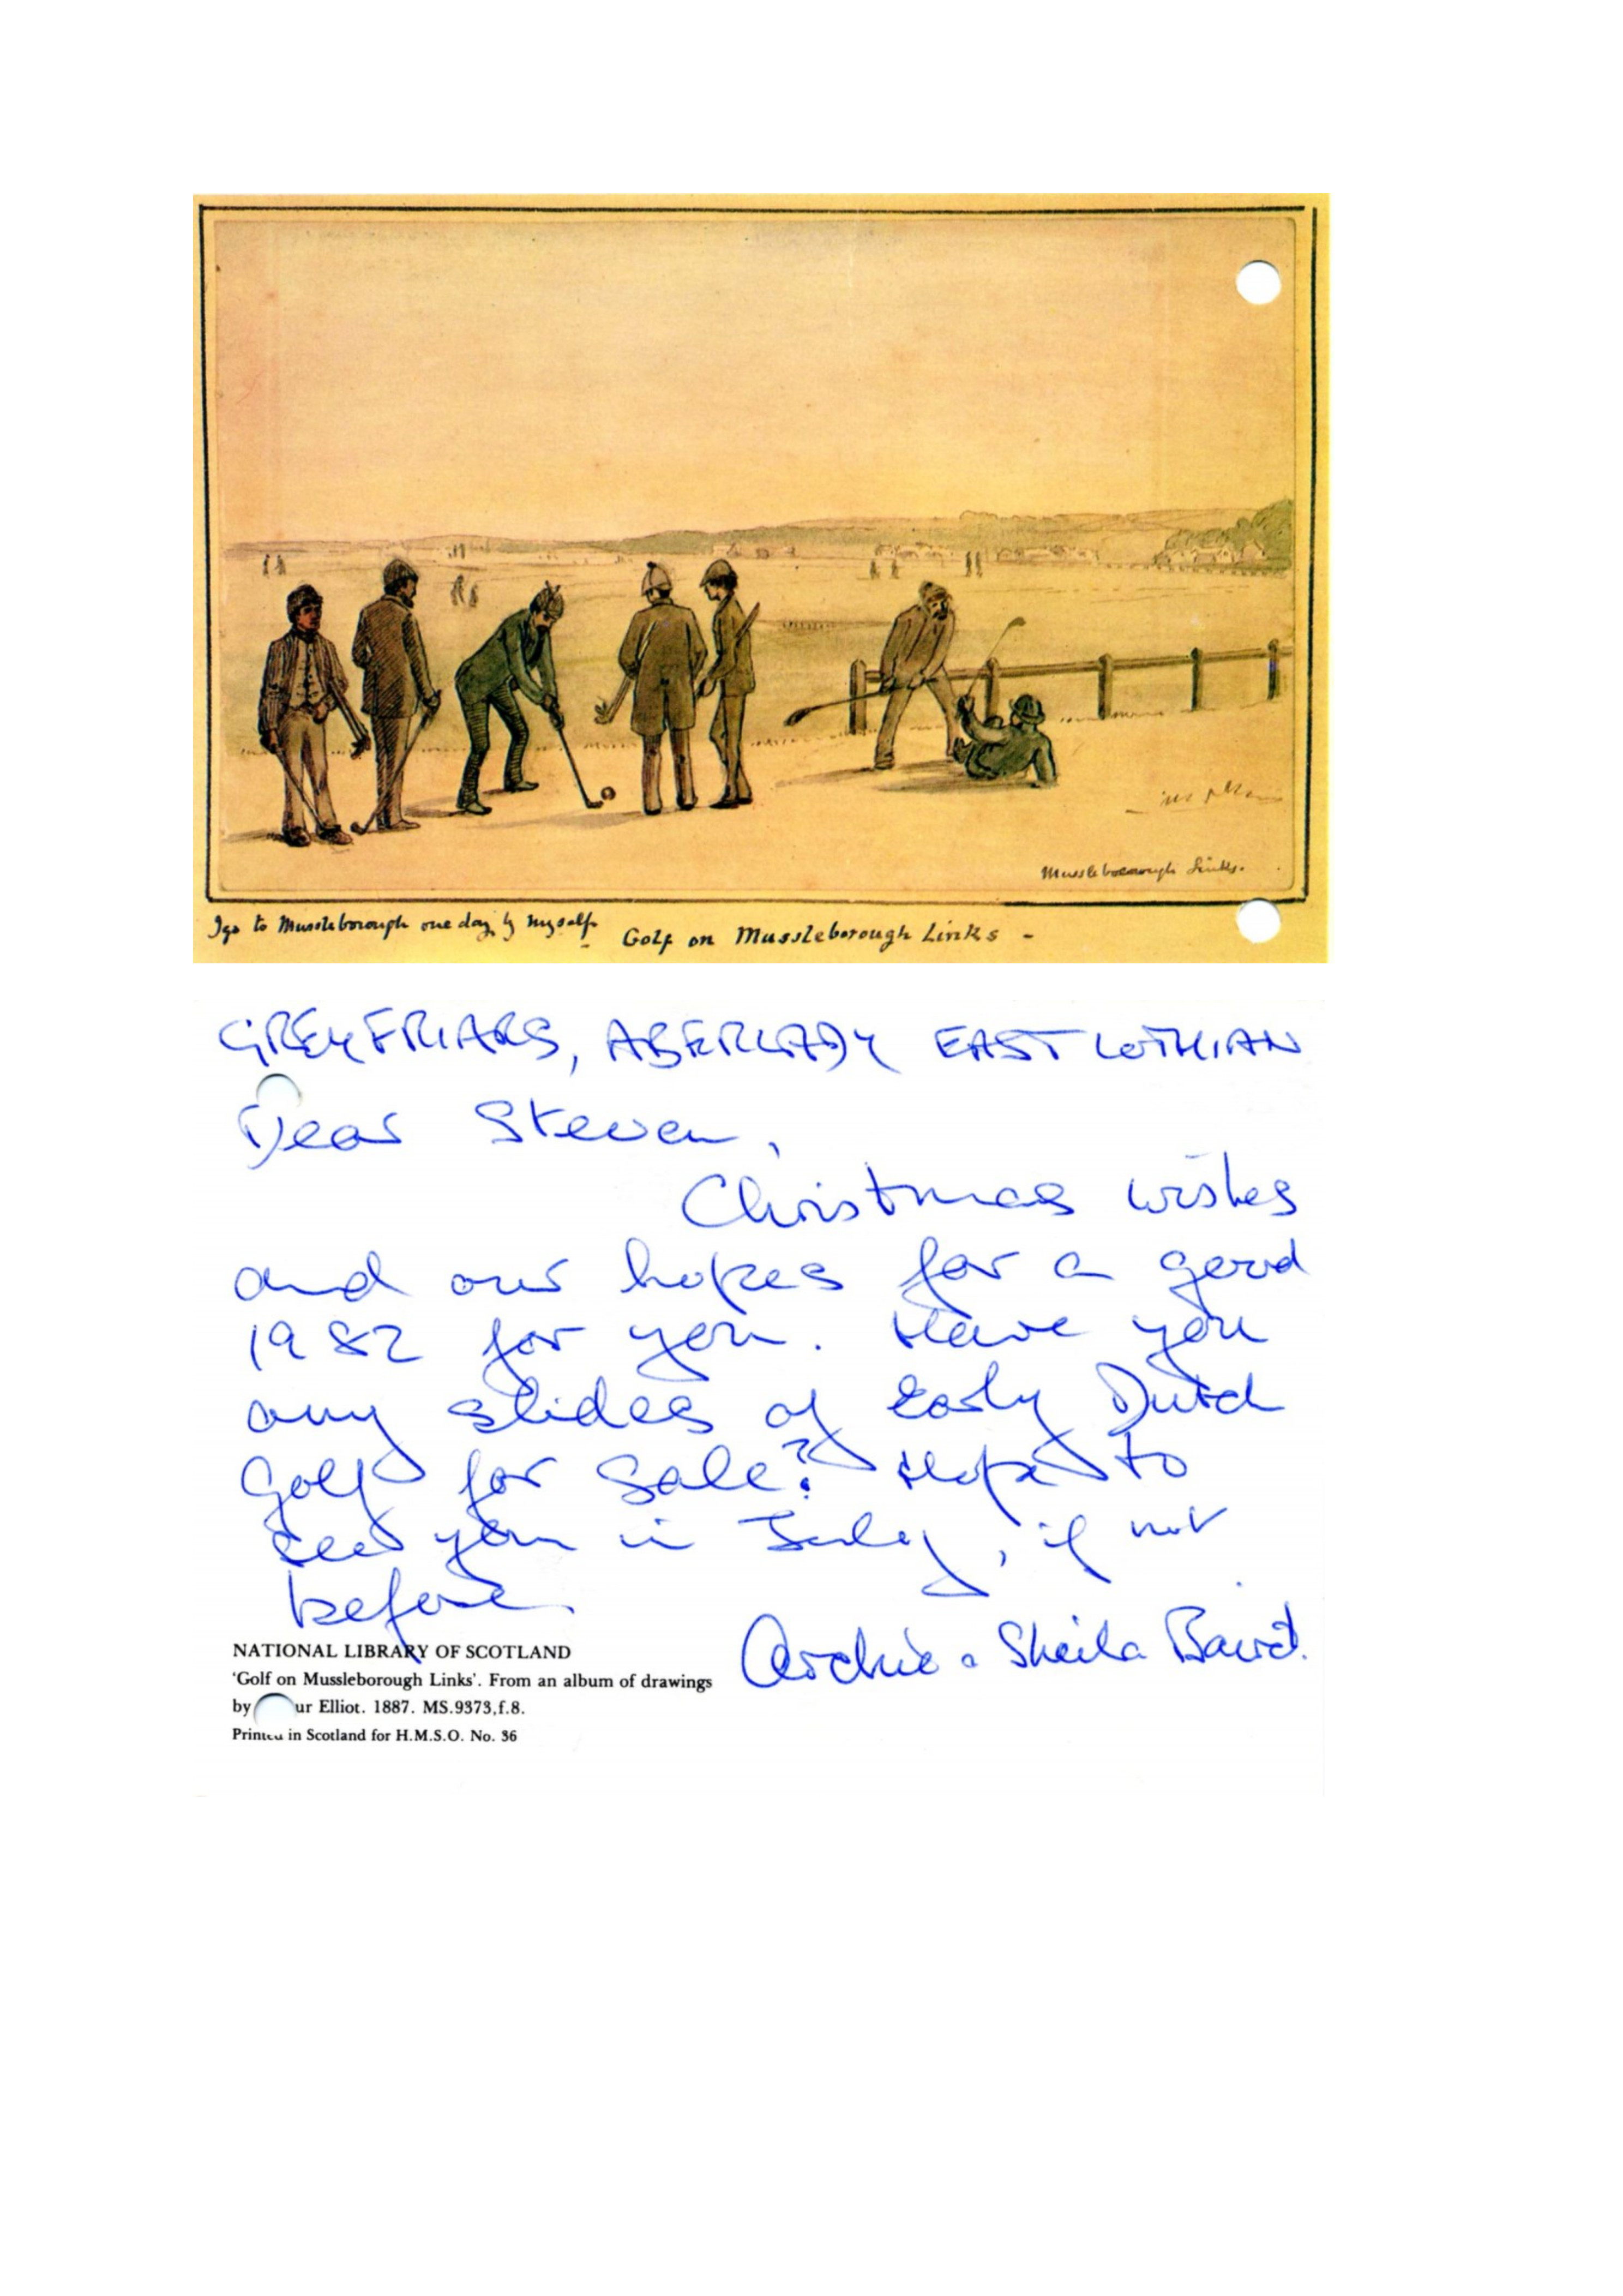 Mussleborough Links.
I go to Mussleborough one day by myself - Golf on Mussleborough Links -
GREYFRIARS, ABERLADY EAST LOTHIAN
Dear Steven,
Christmas wishes
and our hopes for a good
1982 for you. Have you
any slides of Early Dutch
Golf for Sale? Hope to
see you in July, if not
before.
Archie & Sheila Baird.
NATIONAL LIBRARY OF SCOTLAND
'Golf on Mussleborough Links'. From an album of drawings
by ur Elliot. 1887. MS.9373,f.8.
Printed in Scotland for H.M.S.O. No. 36